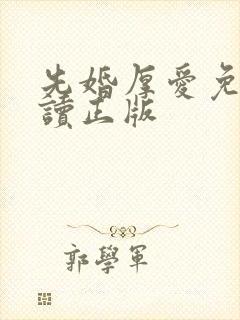 先婚厚愛免
讀正版
郭學軍